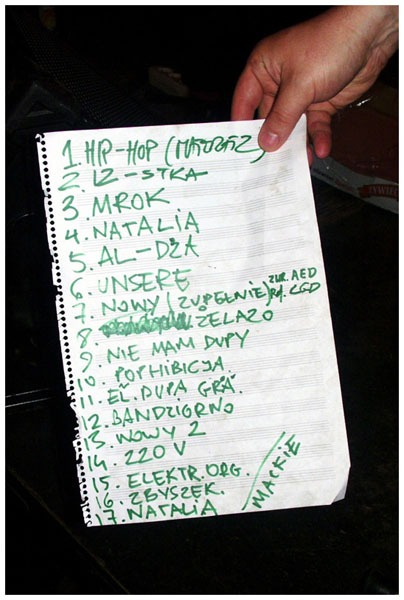 1. HIP-HOP (MATORAZ)
2. 12-STKA
3. MROK
4. NATALIA
5. AL-DŻA
6. UNSERE
7. NOWY (ZUPEŁNIE)
8. ŻELAZO
9. NIE MAM DUPY
10. POPHIBICJA.
11. EL. DUPA GRA.
12. BANDZIORNO
13. NOWY 2
14. 220 V
15. ELEKTR. ORG.
16. ZBYSZEK.
17. NATALIA
MACKIE
ŻYWIEC